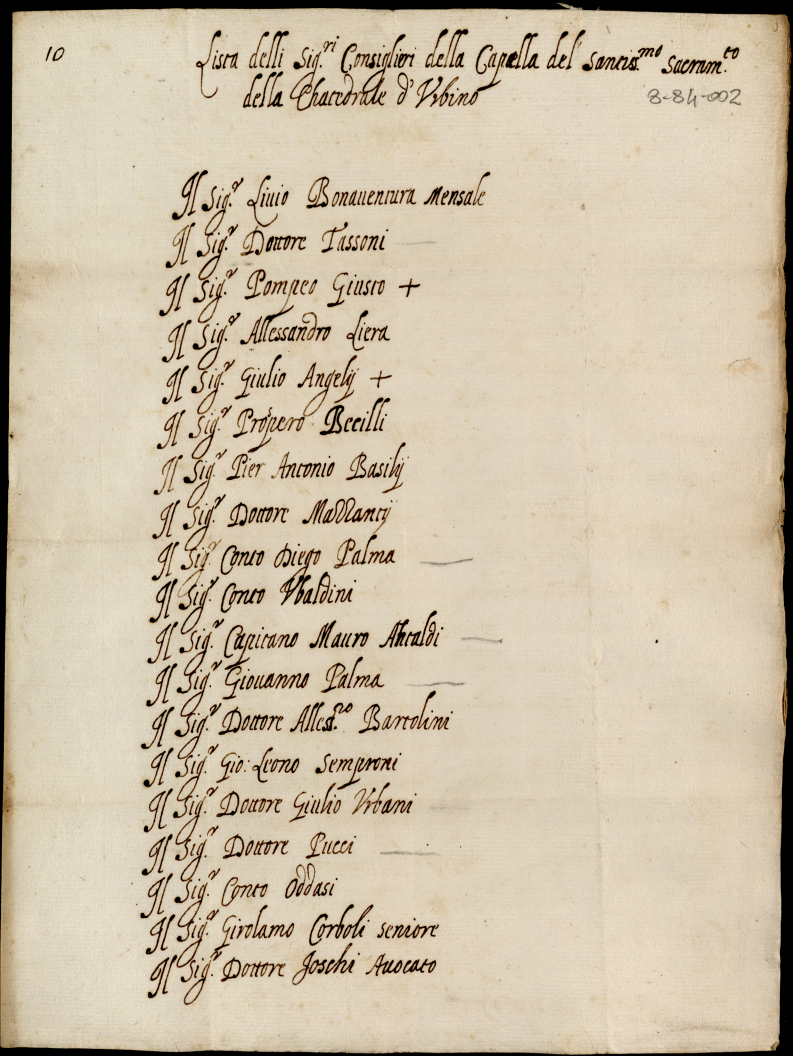 10
Lista delli Sig.ri Consiglieri della Capella del Santiss.mo Sacram.to
della Chatedrale d'Vrbino
8-84-002
Il Sig.r Liuio Bonauentura Mensale
Il Sig.r Dottore Tassoni
Il Sig.r Pompeo Giusto +
Il Sig.r Allessandro Liera
Il Sig.r Giulio Angelij +
Il Sig.r Prospero Becilli
Il Sig.r Pier Antonio Basilij
Il Sig.r Dottore Mazzantij
Il Sig.r Conto Diego Palma
Il Sig.r Conto Vbaldini
Il Sig.r Capitano Mauro
Il Sig.r Giouanno Palma
Il Sig.r Dottore Bartolini
Il Sig.r Gio: Leono Semproni
Il Sig.r Dottore Giulio Vrbani
Il Sig.r Dottore Pucci
Il Sig.r Conto Oddasi
Il Sig.r Girolamo Corboli seniore
Il Sig.r Dottore Joschi Auocato